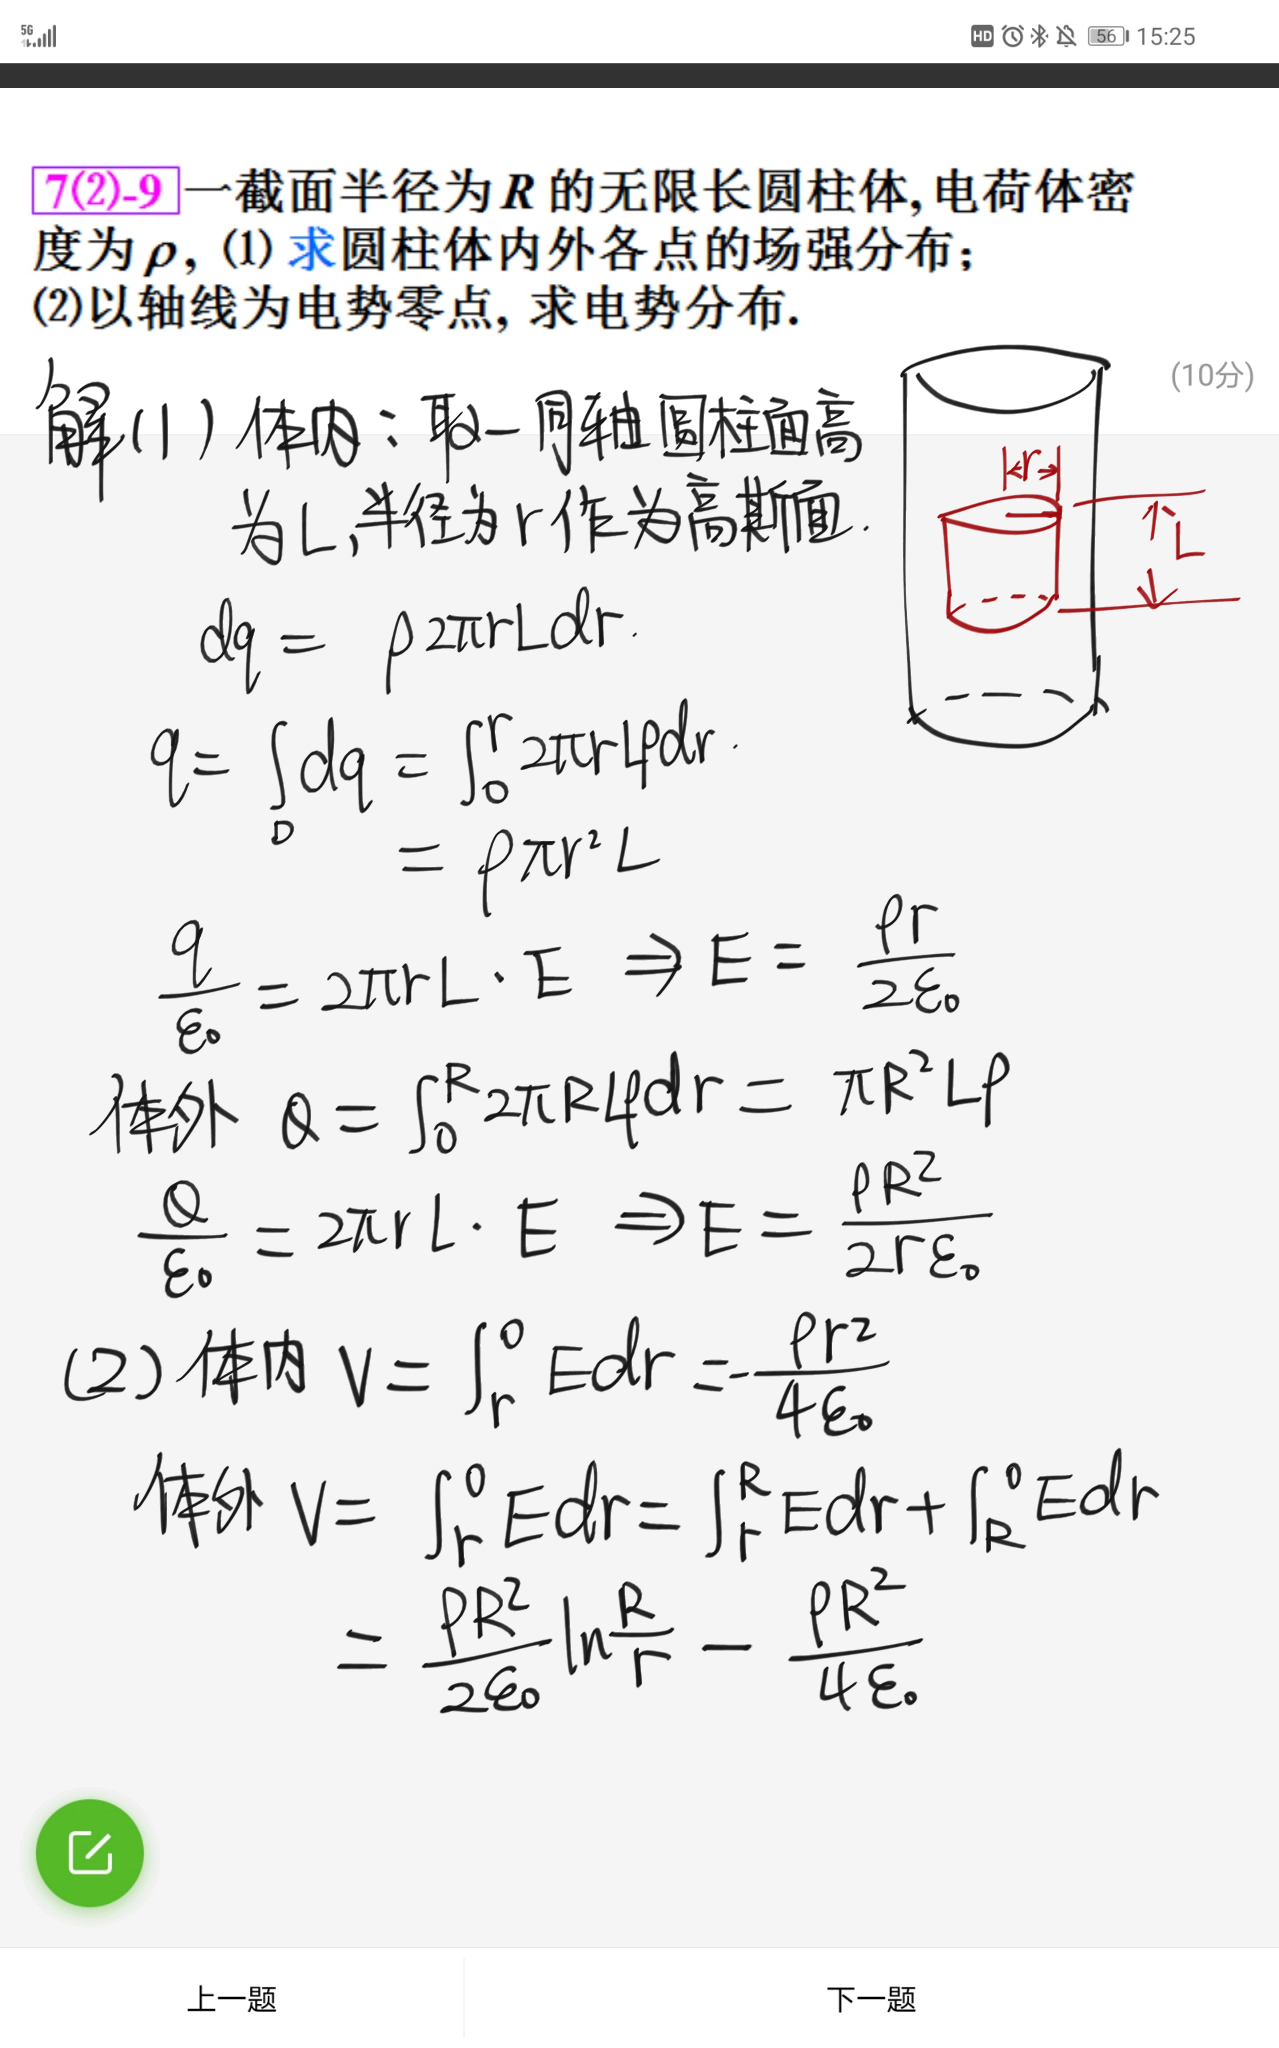 5G
HD 56 15:25
7(2)-9 一截面半径为 R 的无限长圆柱体, 电荷体密
度为 ρ, (1) 求圆柱体内外各点的场强分布;
(2)以轴线为电势零点, 求电势分布.
(10分)
解(1) 体内: 取一同轴圆柱面高
为L,半径为r作为高斯面.
r
L
dq = ρ2πrLdr.
q = ∫_D dq = ∫_0^r 2πrLρdr.
= ρπr²L
q/ε₀ = 2πrL · E ⇒ E = ρr/2ε₀
体外 Q = ∫_0^R 2πRLρdr = πR²Lρ
Q/ε₀ = 2πrL · E ⇒ E = ρR²/2rε₀
(2) 体内 V = ∫_r^0 Edr = -ρr²/4ε₀
体外 V = ∫_r^0 Edr = ∫_r^R Edr + ∫_R^0 Edr
= ρR²/2ε₀ ln R/r - ρR²/4ε₀
上一题 下一题